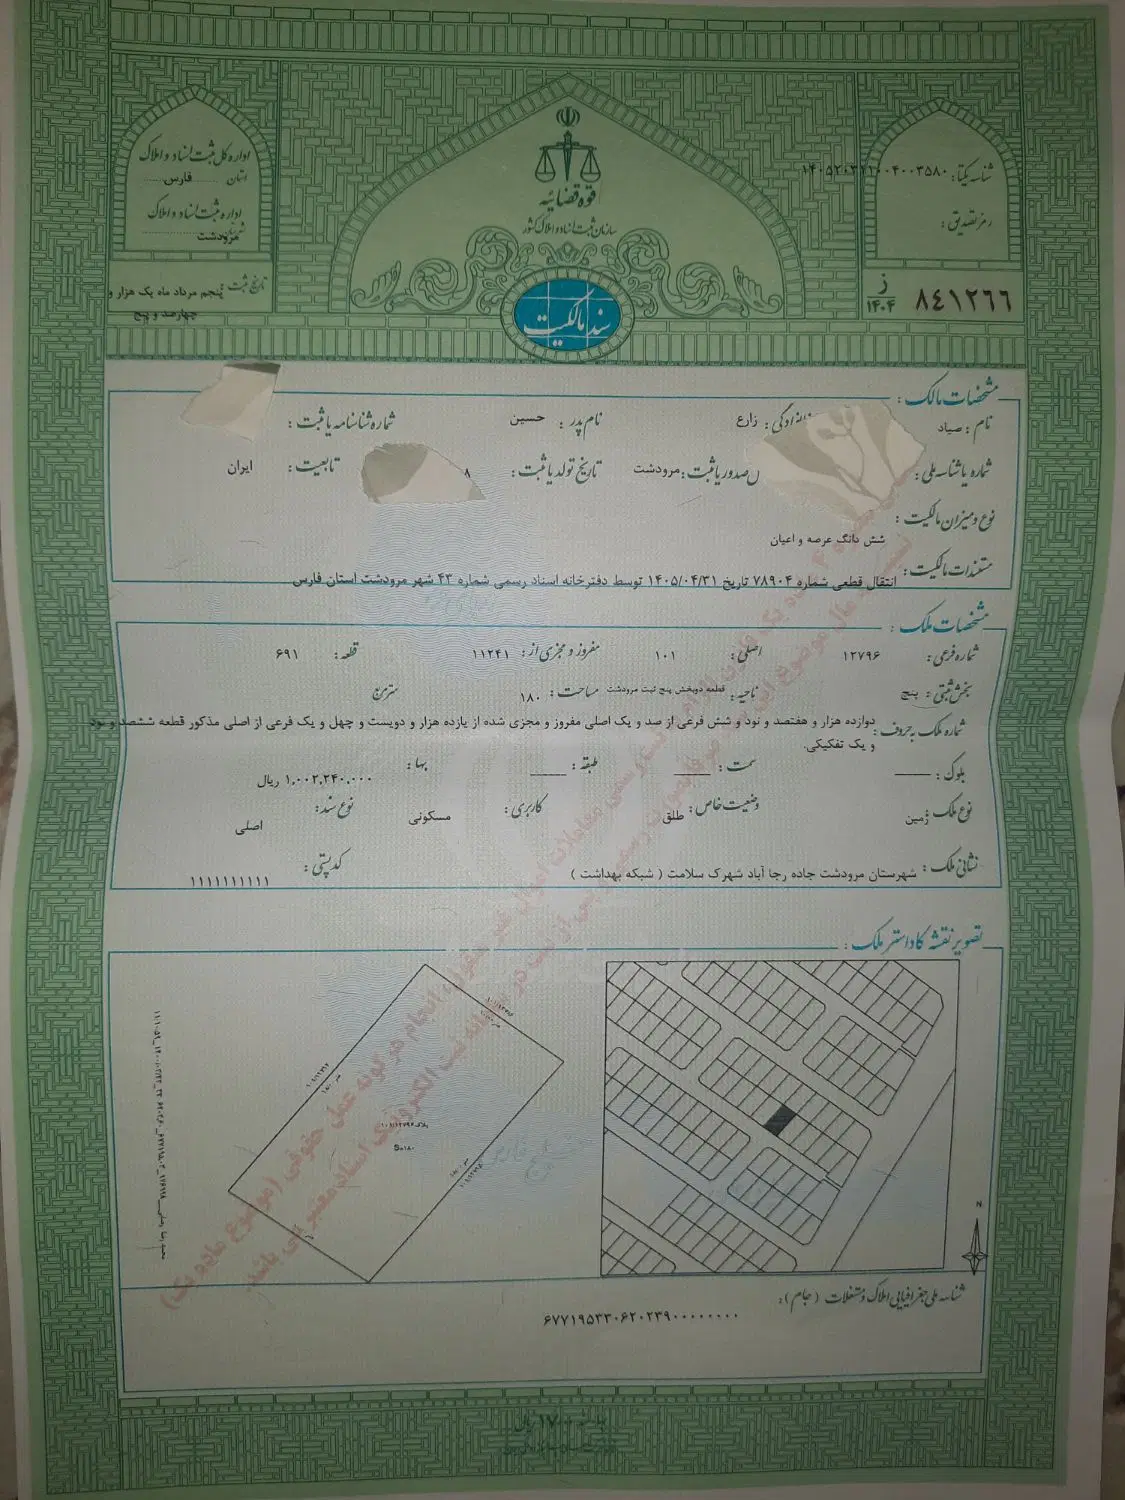 قوه قضائیه
سازمان ثبت اسناد و املاک کشور
سند مالکیت
اداره کل ثبت اسناد و املاک
استان فارس
اداره ثبت اسناد و املاک
مرودشت
تاریخ ثبت: پنجم مرداد ماه یک هزار و
چهارصد و پنج
شناسه یکتا:
رمز تصدیق:
۸۴۱۲۶۶ ز ۱۴۰۴
مشخصات مالک:
نام: صیاد نام خانوادگی: زارع نام پدر: حسین شماره شناسنامه یا ثبت:
شماره یا شناسه ملی: محل صدور یا ثبت: مرودشت تاریخ تولد یا ثبت: ۸ تابعیت: ایران
نوع و میزان مالکیت:
شش دانگ عرصه و اعیان
مستندات مالکیت: انتقال قطعی شماره ۷۸۹۰۴ تاریخ ۱۴۰۵/۰۴/۳۱ توسط دفترخانه اسناد رسمی شماره ۴۳ شهر مرودشت استان فارس
مشخصات ملک:
شماره فرعی: ۱۲۷۹۶ اصلی: ۱۰۱ مفروز و مجزی از: ۱۱۲۴۱ قطعه: ۶۹۱
بخش ثبتی: پنج ناحیه: قطعه دوبخش پنج ثبت مرودشت مساحت: ۱۸۰ مترمربع
شماره ملک به حروف: دوازده هزار و هفتصد و نود و شش فرعی از صد و یک اصلی مفروز و مجزی شده از یازده هزار و دویست و چهل و یک فرعی از اصلی مذکور قطعه ششصد و نود
و یک تفکیکی.
بلوک: سمت: طبقه: بها: ۱,۰۰۲,۲۴۰,۰۰۰ ریال
نوع ملک: زمین وضعیت خاص: طلق کاربری: مسکونی نوع سند: اصلی
نشانی ملک: شهرستان مرودشت جاده رجا آباد شهرک سلامت ( شبکه بهداشت ) کد پستی: ۱۱۱۱۱۱۱۱۱۱
تصویر نقشه کاداستر ملک:
پلاک ۱۰۱/۱۲۷۹۶
S=۱۸۰
N
شناسه ملی جغرافیایی املاک و مستغلات (جام):
۶۷۷۱۹۵۳۳۰۶۲۰۲۳۹۰۰۰۰۰۰۰۰